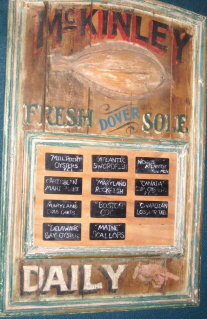 McKINLEY
FRESH DOVER SOLE
"MILL POINT" OYSTERS
"ATLANTIC" SWORDFISH
"NORTH ATLANTIC"
"MARYLAND" ROCKFISH
"CANADA"
"MARYLAND" CRAB CAKES
"BOSTON" COD
"CANADIAN" LOBSTER TAIL
"DELAWARE BAY" OYSTERS
"MAINE" SCALLOPS
DAILY